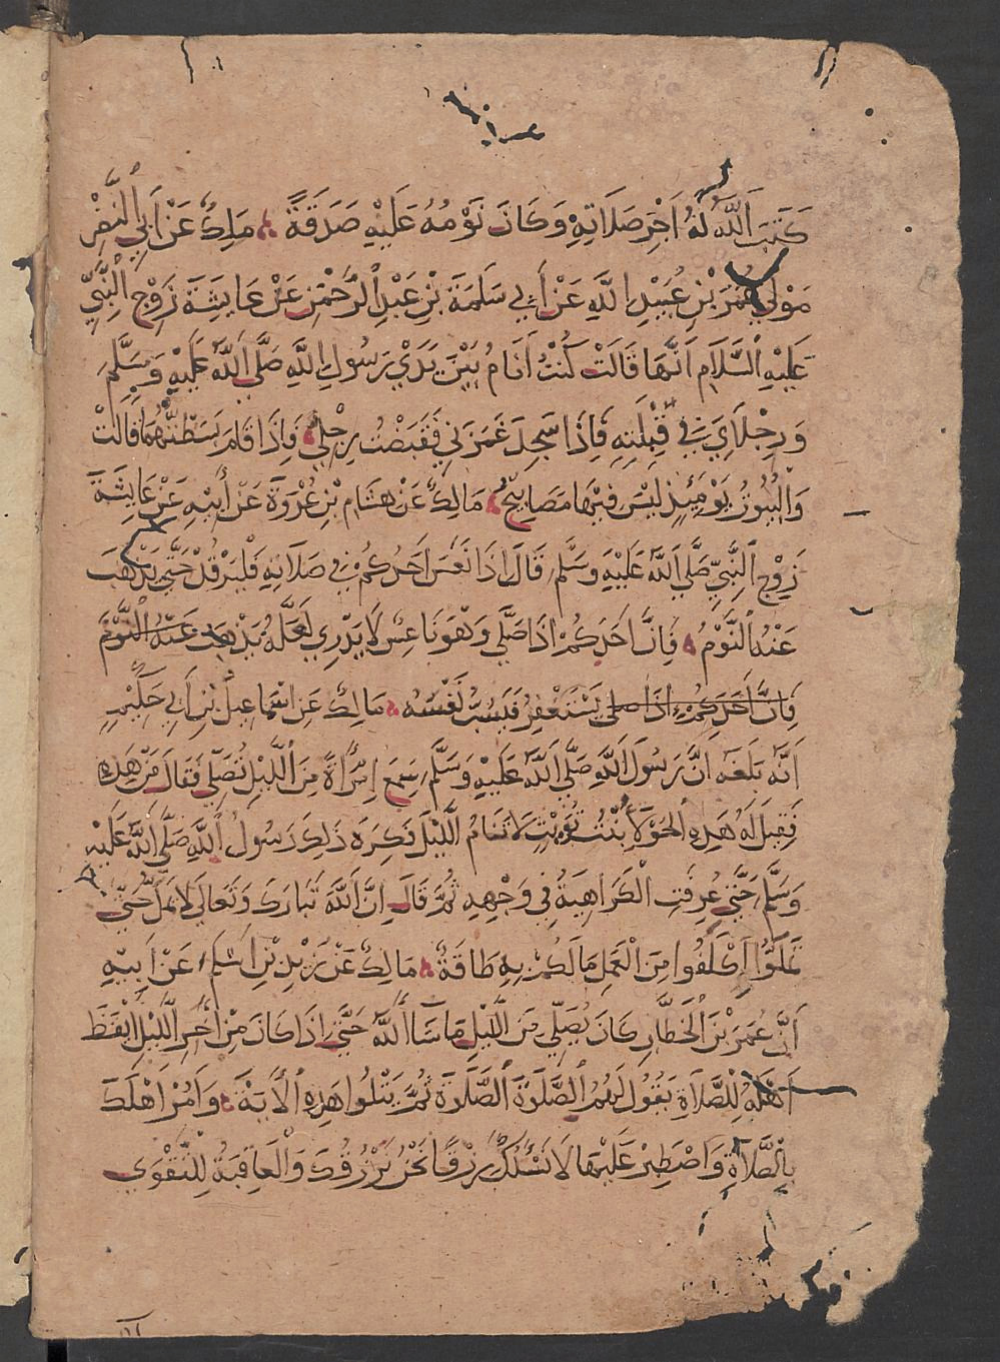 كَتَبَ اَللَّهُ لَهُ اَجْرَ صَلَاتِهِ وَكَانَ نَوْمُهُ عَلَيْهِ صَدَقَةً مَالِكٌ عَنْ أَبِي اَلنَّضْرِ
مَوْلَي عُمَرَ بْنِ عُبَيْدِ اللَّهِ عَنْ أَبِي سَلَمَةَ بْنِ عَبْدِ اَلرَّحْمَنِ عَنْ عَايِشَةَ زَوْجِ اَلنَّبِيِّ
عَلَيْهِ اَلسَّلَامِ اَنَّهَا قَالَتْ كُنْتُ اَنَامُ بَيْنَ يَدَيْ رَسُولِ اللَّهِ صَلَّي اَللَّهُ عَلَيْهِ وَسَلَّمَ
وَرِجْلَايَ فِي قِبْلَتِهِ فَاِذَا سَجَدَ غَمَزَنِي فَقَبَضْتُ رِجْلَيَّ فَاِذَا قَامَ بَسَطْتُهُمَا قَالَتْ
وَالْبُيُوتُ يَوْمَيِٕذٍ لَيْسَ فِيْهَا مَصَابِيْحُ مَالِكٌ عَنْ هِشَامِ بْنِ عُرْوَةَ عَنْ أَبِيْهِ عَنْ عَايِشَةَ
زَوْجِ اَلنَّبِيِّ صَلَّي اَللَّهُ عَلَيْهِ وَسَلَّمَ قَالَ اِذَا نَعَسَ اَحَدُكُمْ فِي صَلَاتِهِ فَلْيَرْقُدْ حَتَّي يَذْهَبَ
عَنْهُ اَلنَّوْمُ فَاِنَّ اَحَدَكُمْ اِذَا صَلَّي وَهْوَ نَاعِسٌ لَا يَدْرِي لَعَلَّهُ يَذْهَبُ عَنْهُ اَلنَّوْمَ
فَاِنَّ اَحَدَكُمْ اِذَا صلي يَسْتَغْفِرُ فَيَسُبَّ نَفْسَهُ مَالِكٌ عَنْ اِسْمَاعِيلَ بْنِ أَبِي حَكِيْمٍ
اَنَّهُ بَلَغَهُ اَنَّ رَسُولَ اَللَّهِ صَلَّي اَللَّهُ عَلَيْهِ وَسَلَّمَ سَمِعَ اِمْرَأَةً مِنَ اَللَّيْلِ تُصَلِّي فَقَالَ مَنْ هَذِهِ
فَقِيلَ لَهُ هَذِهِ اَلْحَوْلَاءُ بِنْتُ تُوَيْتٍ لَا تَنَامُ اَللَّيْلَ فَكَرِهَ ذَلِكَ رَسُولُ اَللَّهِ صَلَّي اَللَّهُ عَلَيْهِ
وَسَلَّمَ حَتَّي عُرِفَتِ الْكَرَاهِيَةُ فِي وَجْهِهِ ثُمَّ قَالَ اِنَّ اَللَّهَ تَبَارَكَ وَتَعَالَي لَا يَمَلُّ حَتَّي
تَمَلُّوا اَكْلَفُوا مِنَ الْعَمَلِ مَا لَكُمْ بِهِ طَاقَةٌ مَالِكٌ عَنْ زَيْدِ بْنِ اَسْلَمَ عَنْ اَبِيْهِ
اَنَّ عُمَرَ بْنَ اَلْخَطَّابِ كَانَ يُصَلِّي مِنَ اَللَّيْلِ مَا شَاءَ اَللَّهُ حَتَّي اِذَا كَانَ مِنْ اَخِرِ اَللَّيْلِ اَيْقَظَ
اَهْلَهُ لِلصَّلَاةِ يَقُولُ لَهُمُ اَلصَّلَوةَ اَلصَّلَوةَ ثُمَّ يَتْلُوا هَذِهِ اَلْأَيَةَ وَاَمُرْ اَهْلَكَ
بِالصَّلَاةِ وَاصْطَبِرْ عَلَيْهَا لَا نَسْئَلُكَ رِزْقًا نَحْنُ نَرْزُقُكَ وَالْعَاقِبَةُ لِلتَّقْوَي